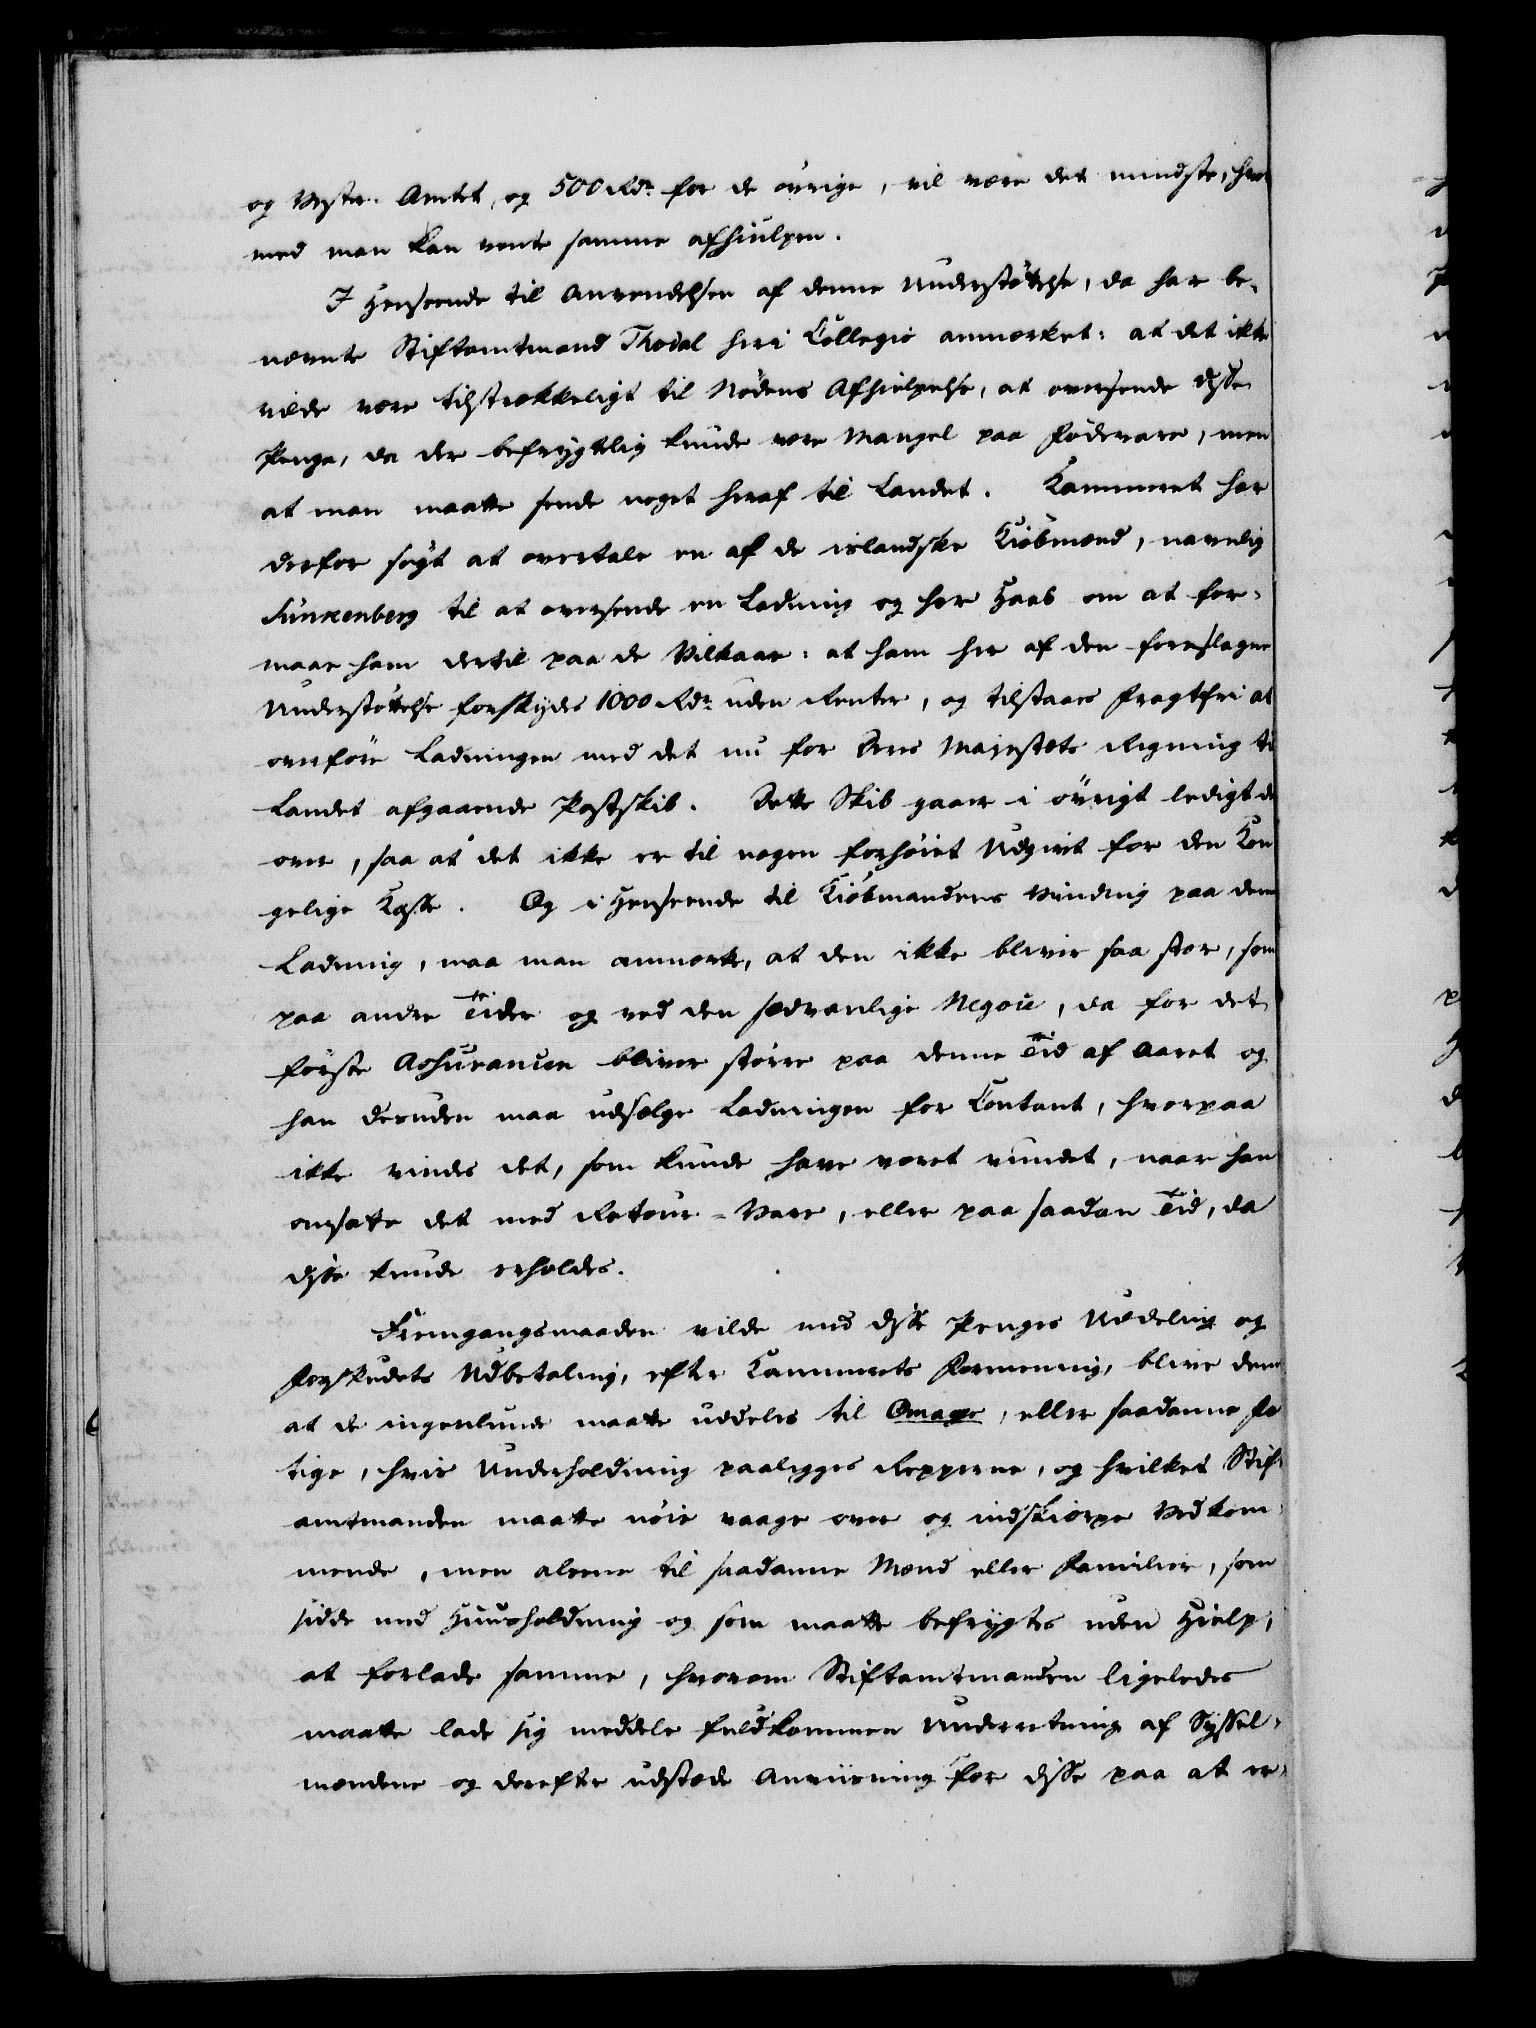 og Vester-Amtet, og 500 Rdr for de övrige, vil være det mindste, hvor
med man kan vente samme afhiulpen.
I Henseende til Anvendelsen af denne Understöttelse, da har be-
nævnte Stiftamtmand Thodal her i Collegio anmærket: at det ikke
vilde være tilstrækkeligt til Nödens Afhielpelse, at oversende disse
Penge, da der befrygtelig kunde være Mangel paa Födevare, men
at man maatte sende noget heraf til Landet. Kammeret har
derfor sögt at overtale en af de islandske Kiöbmænd, navnlig
Sunckenberg til at oversende en Ladning og har Haab om at for-
maae ham dertil paa de Vilkaar: at ham her af den foreslagne
Understöttelse forskydes 1000 Rdr uden Renter, og tilstaaes fragtfri at
overföre Ladningen med det nu for Deres Majestæts Regning til
Landet afgaaende Postskib. Dette Skib gaaer i övrigt ledigt der
over, saa at det ikke er til nogen forhöiet Udgivt for den Kon
gelige Kasse. Og i Henseende til Kiöbmandens Vinding paa denne
Ladning, maa man anmærke, at den ikke bliver saa stor, som
paa andre Tider og ved den sædvanlige Negoce, da for det
förste Assurancen bliver större paa denne Tid af Aaret og
han desuden maa udsælge Ladningen for Contant, hvorpaa
ikke vindes det, som kunde have været vundet, naar han
omsatte det med Retour-Vare, eller paa saadan Tid, da
disse kunde erholdes.
Fremgangsmaaden vilde med disse Penges Uddeling og
Forskudets Udbetaling, efter Kammerets Formening, blive denne
at de ingenlunde maatte uddeles til Omager, eller saadanne Fat
tige, hvis Underholdning paaligges Repperne, og hvilket Stift
amtmanden maatte nöie vaage over og indskiærpe Vedkom-
mende, men alene til saadanne Mænd eller Familier, som
sidde med Huusholdning og som maatte befrygtes uden Hielp,
at forlade samme, hvorom Stiftamtmanden ligeledes
maatte lade sig meddele fuldkommen Underretning af Syssel-
mændene og derefter udstæde Anviisning for disse paa at er-